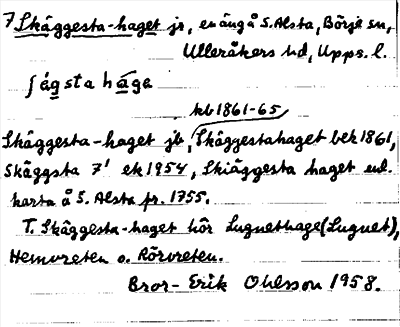 7 Skäggesta-haget jr, en äng å S. Alsta, Börje sn,
Ulleråkers hd, Upps. l.
ʃ ägsta hage
kb 1861-65
Skäggesta-haget jb, Skäggestahaget bek 1861,
Skäggsta 7' ek 1954, Skiäggesta haget enl.
karta å S. Alsta fr. 1755.
T. Skäggesta-haget hör Lugnethage (Lugnet),
Hemvreten o. Rörvreten.
Bror-Erik Ohlsson 1958.